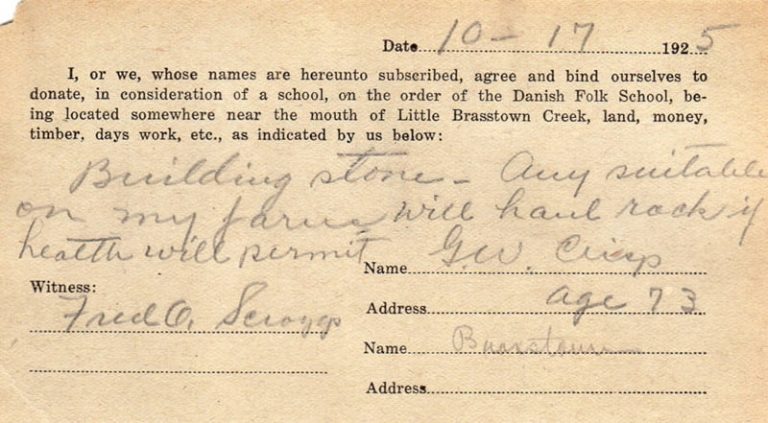 Date 10 - 17 1925
I, or we, whose names are hereunto subscribed, agree and bind ourselves to
donate, in consideration of a school, on the order of the Danish Folk School, be-
ing located somewhere near the mouth of Little Brasstown Creek, land, money,
timber, days work, etc., as indicated by us below:
Building stone - Any suitable
on my farm will haul rock if
health will permit
Name G.W. Crisp
Witness:
Fred O. Scroggs
Address age 73
Name Brasstown
Address